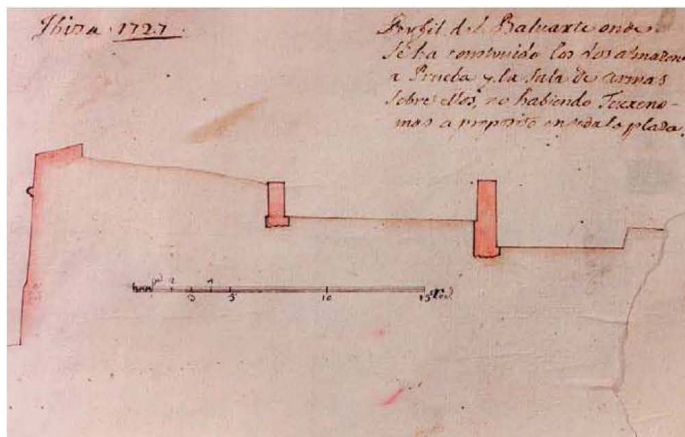 Ibiza 1727.
Perfil del Baluarte onde
se ha construido los dos almazen
a Prueba y la sala de armas
sobre ellos, no habiendo Terreno
mas a proposito en toda la plaza.
5 10 15